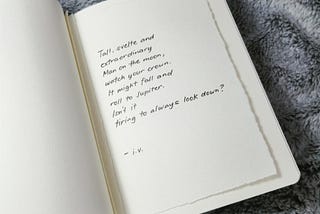 Tall, svelte and
extraordinary
Man on the moon,
watch your crown.
It might fall and
roll to Jupiter.
Isn't it
tiring to always look down?
- i.v.